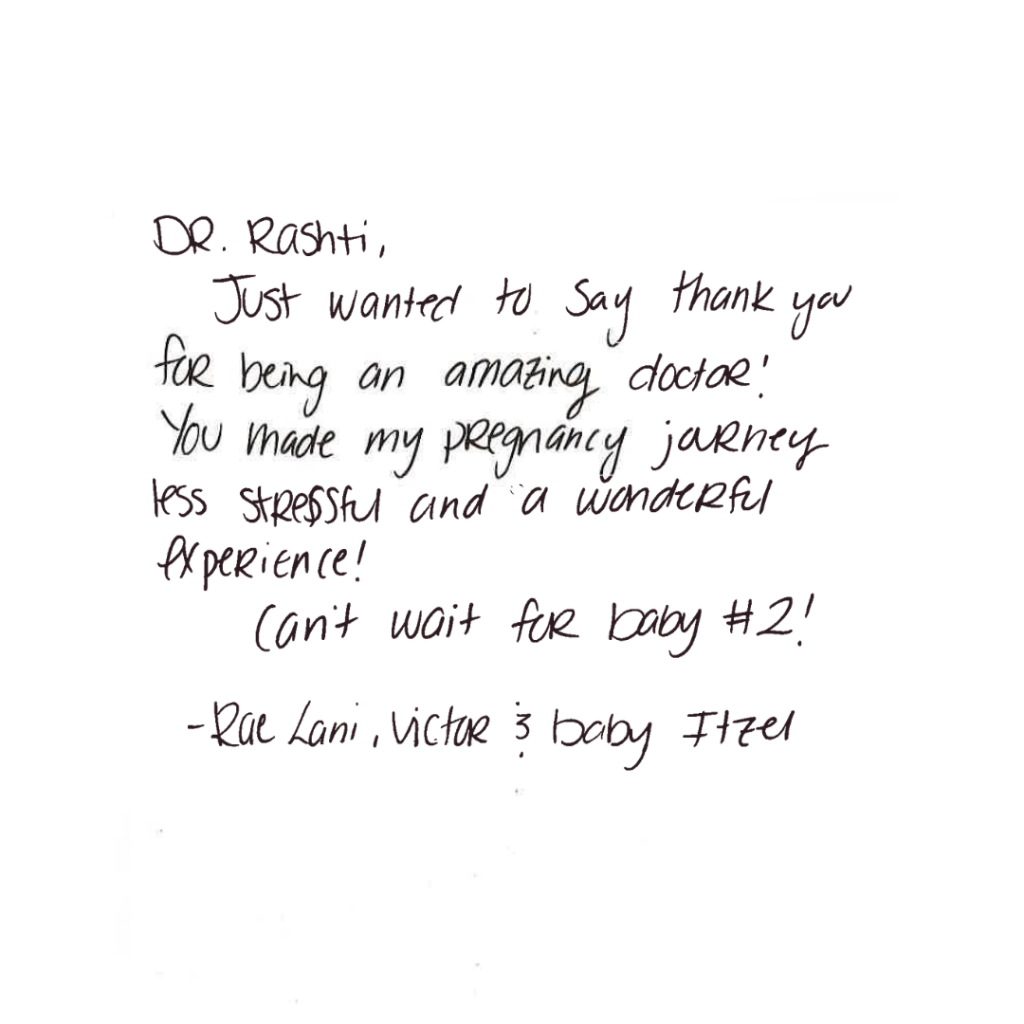 DR. Rashti,
Just wanted to say thank you
for being an amazing doctor!
You made my pregnancy journey
less stressful and a wonderful
experience!
Can't wait for baby #2!
-Rae Lani, Victor & baby Itzel